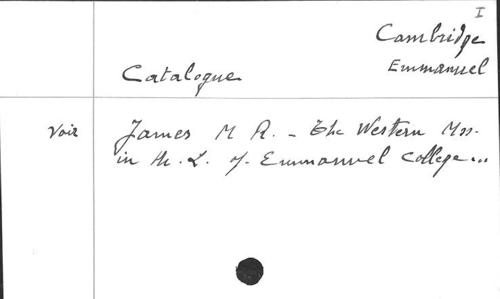 I
Cambridge
Emmanuel
Catalogue
Voir James M R. - The Western Mss.
in the. L. of. Emmanuel College...